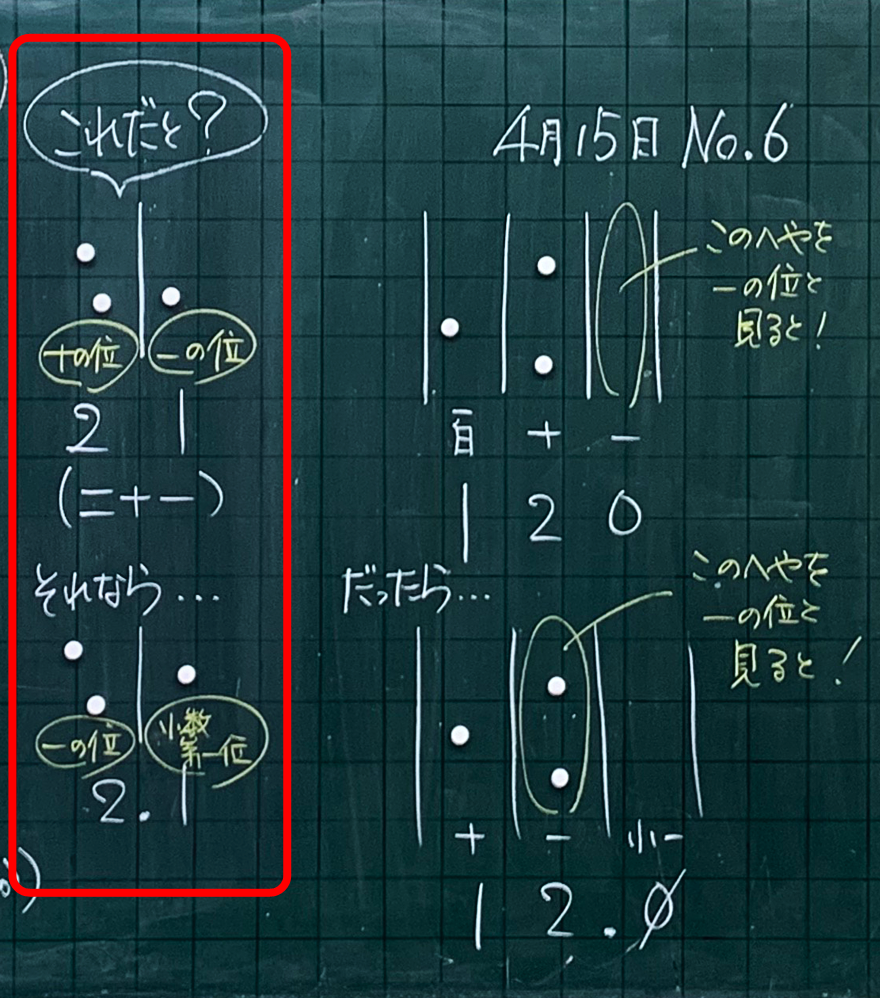 これだと?
十の位 一の位
2 1
(二十一)
それなら...
一の位 小数第一位
2.1
4月15日 No.6
このへやを
一の位と
見ると!
百 十 一
1 2 0
だったら...
このへやを
一の位と
見ると!
十 一 小一
1 2.0